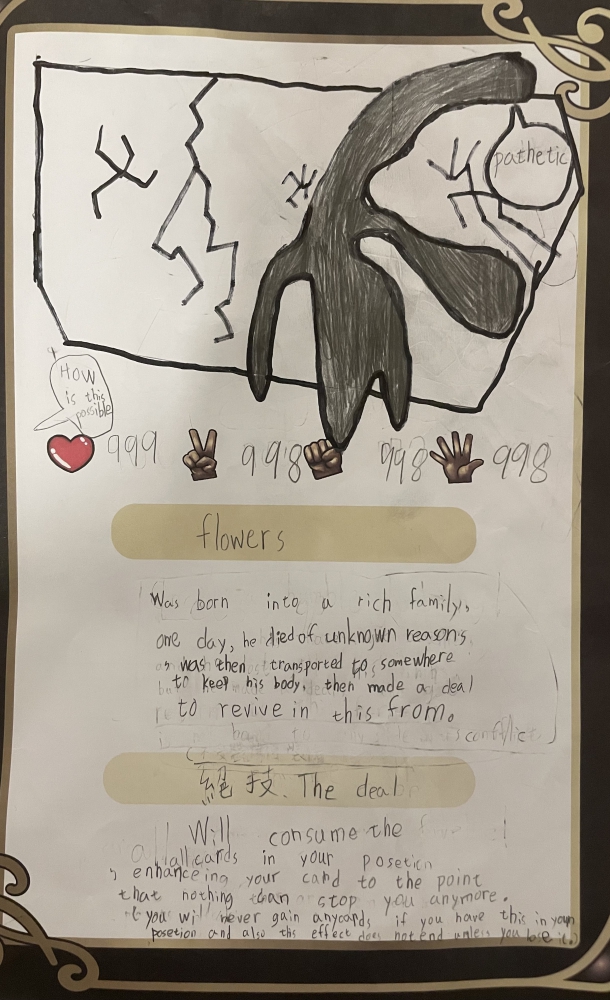 pathetic
How
is this
possible
999 998 998 998
flowers
Was born into a rich family,
one day, he died of unknown reasons
was then transported to somewhere
to keep his body, then made a deal
to revive in this from.
conflict
絕技. The deal
Will consume the
all cards in your posetion
enhanceing your card to the point
that nothing can stop you anymore.
(you will never gain anycards if you have this in your
posetion and also this effect does not end unless you lose it.)